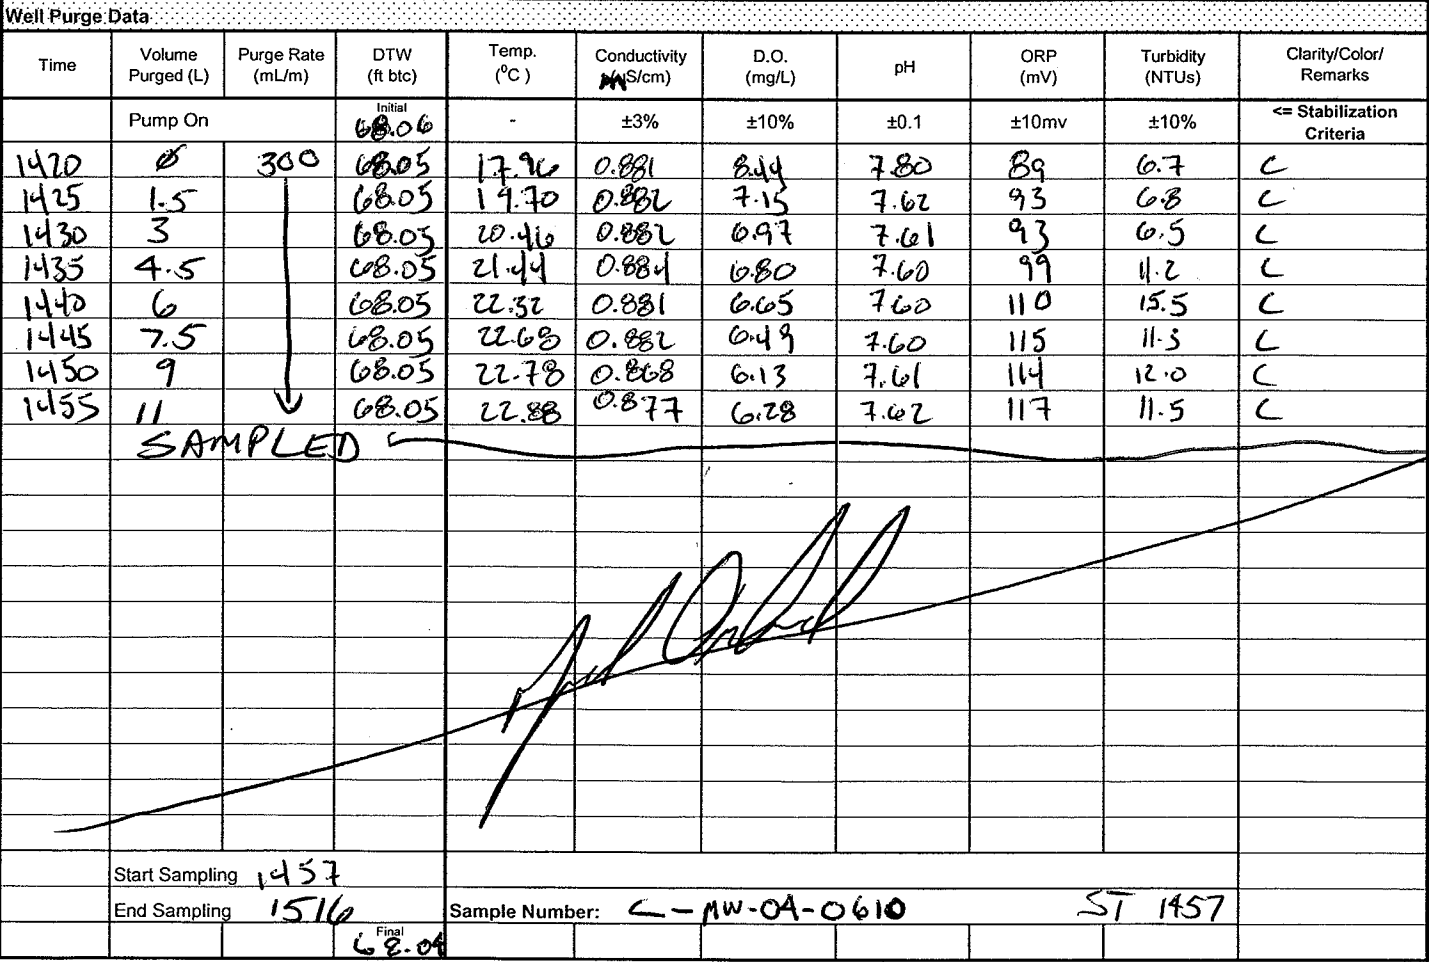 Well Purge Data
Time Volume Purged (L) Purge Rate (mL/m) DTW (ft btc) Temp. (°C) Conductivity (mS/cm) D.O. (mg/L) pH ORP (mV) Turbidity (NTUs) Clarity/Color/ Remarks
Pump On Initial 68.06 - ±3% ±10% ±0.1 ±10mv ±10% <= Stabilization Criteria
1420 0 300 68.05 17.96 0.881 8.44 7.80 89 6.7 C
1425 1.5 68.05 19.70 0.882 7.15 7.62 93 6.8 C
1430 3 68.05 20.46 0.882 6.97 7.61 93 6.5 C
1435 4.5 68.05 21.44 0.884 6.80 7.60 99 11.2 C
1440 6 68.05 22.32 0.881 6.65 7.60 110 15.5 C
1445 7.5 68.05 22.68 0.882 6.49 7.60 115 11.3 C
1450 9 68.05 22.78 0.868 6.13 7.61 114 12.0 C
1455 11 68.05 22.88 0.877 6.28 7.62 117 11.5 C
SAMPLED
Start Sampling 1457
End Sampling 1516 Sample Number: C-MW-04-0610 ST 1457
Final 68.04